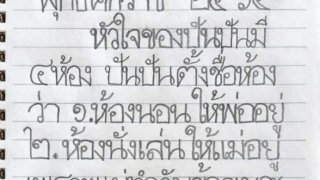 พุทธศักราช ๒๕๖๕
หัวใจของปันปันมี
๔ ห้อง ปันปันตั้งชื่อห้อง
ว่า ๑.ห้องนอน ให้พ่ออยู่
๒.ห้องนั่งเล่น ให้แม่อยู่